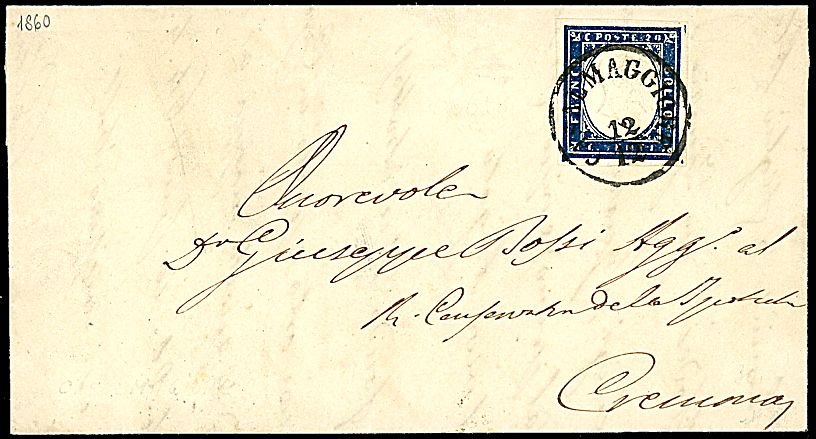 1860
C. POSTE. 20
FRANCO
BOLLO
12
12
Onorevole
Dr Giuseppe Bossi Agg. al
R. Conservatore delle Ipoteche
Cremona